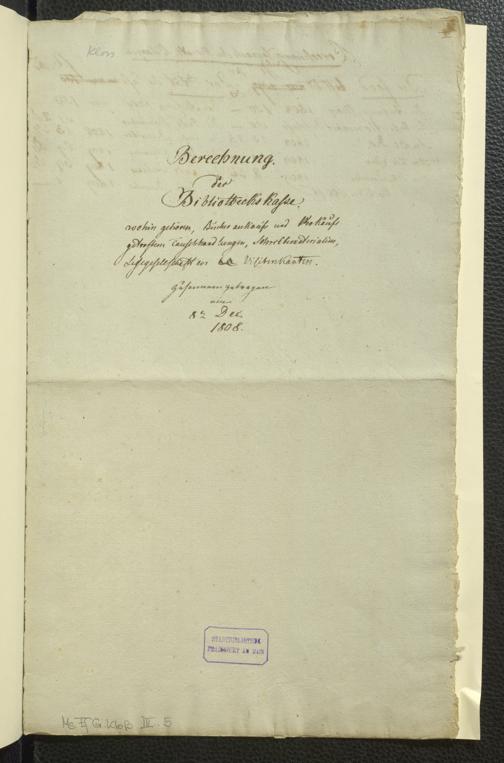 Kloss
Berechnung.
der
Bibliothecks Kasse,
wohin gehören, Bücher ankauf und Verkauf
getroffenen Tauschhandlungen, Schreibmaterialien,
Lesegesellschaften Visitenkarten.
zusammengetragen
8n Dec.
1808.
STADTBIBLIOTHEK
FRANKFURT AM MAIN
Ms. Ff. G. Kloß III. 5